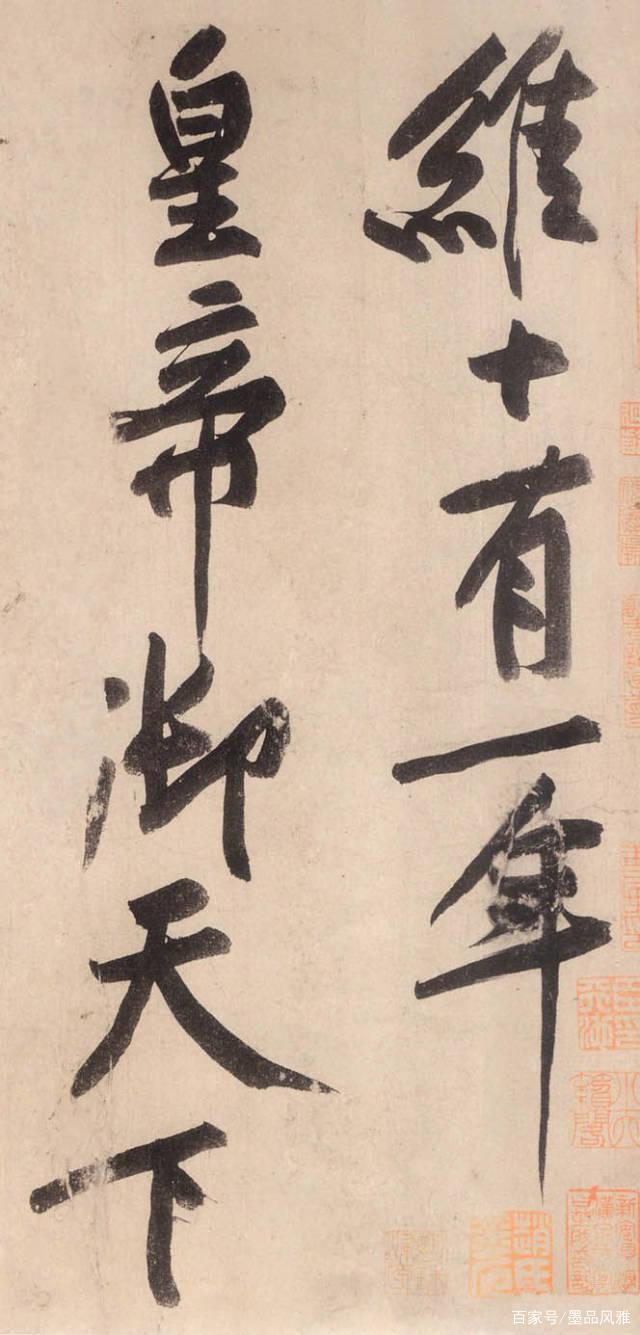 維十有一年
皇帝御天下
百家号/墨品风雅